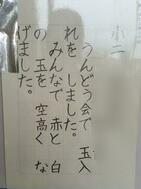 小二
うんどう会で 玉入
れを しました。
みんなで 赤と 白
の 玉を 空高く な
げました。